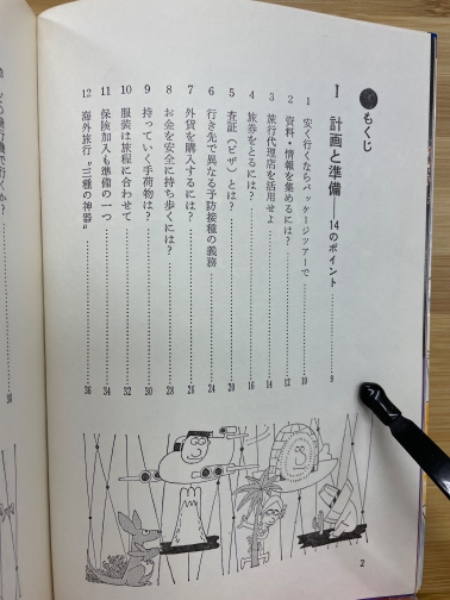 もくじ
I 計画と準備──14のポイント……9
1 安く行くならパッケージツアーで……10
2 資料・情報を集めるには?……12
3 旅行代理店を活用せよ……14
4 旅券をとるには?……16
5 査証(ビザ)とは?……20
6 行き先で異なる予防接種の義務……24
7 外貨を購入するには?……26
8 お金を安全に持ち歩くには?……28
9 持っていく手荷物は?……30
10 服装は旅程に合わせて……32
11 保険加入も準備の一つ……34
12 海外旅行“三種の神器”……36
2
行機で行くか?……38